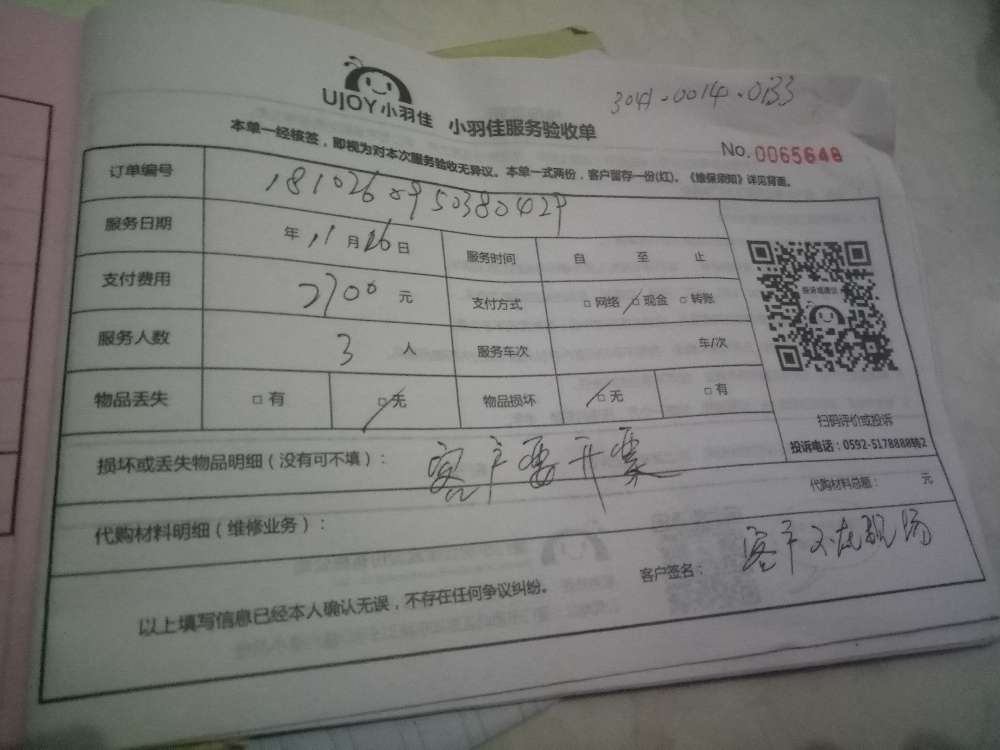 3041.0014.0133
UJOY小羽佳 小羽佳服务验收单
No.0065648
本单一经核签，即视为对本次服务验收无异议。本单一式两份，客户留存一份(红)。《维保须知》详见背面。
订单编号 1810260950380429
服务日期 年 11 月 26 日 服务时间 自 至 止
支付费用 2700 元 支付方式 □网络 □现金 □转账
服务人数 3 人 服务车次 车/次
物品丢失 □有 □无 物品损坏 □无 □有
投诉或建议
扫码评价或投诉
投诉电话：0592-5178888转2
损坏或丢失物品明细（没有可不填）： 客户要开票
代购材料明细（维修业务）： 代购材料总额： 元
以上填写信息已经本人确认无误，不存在任何争议纠纷。 客户签名： 客户不在现场